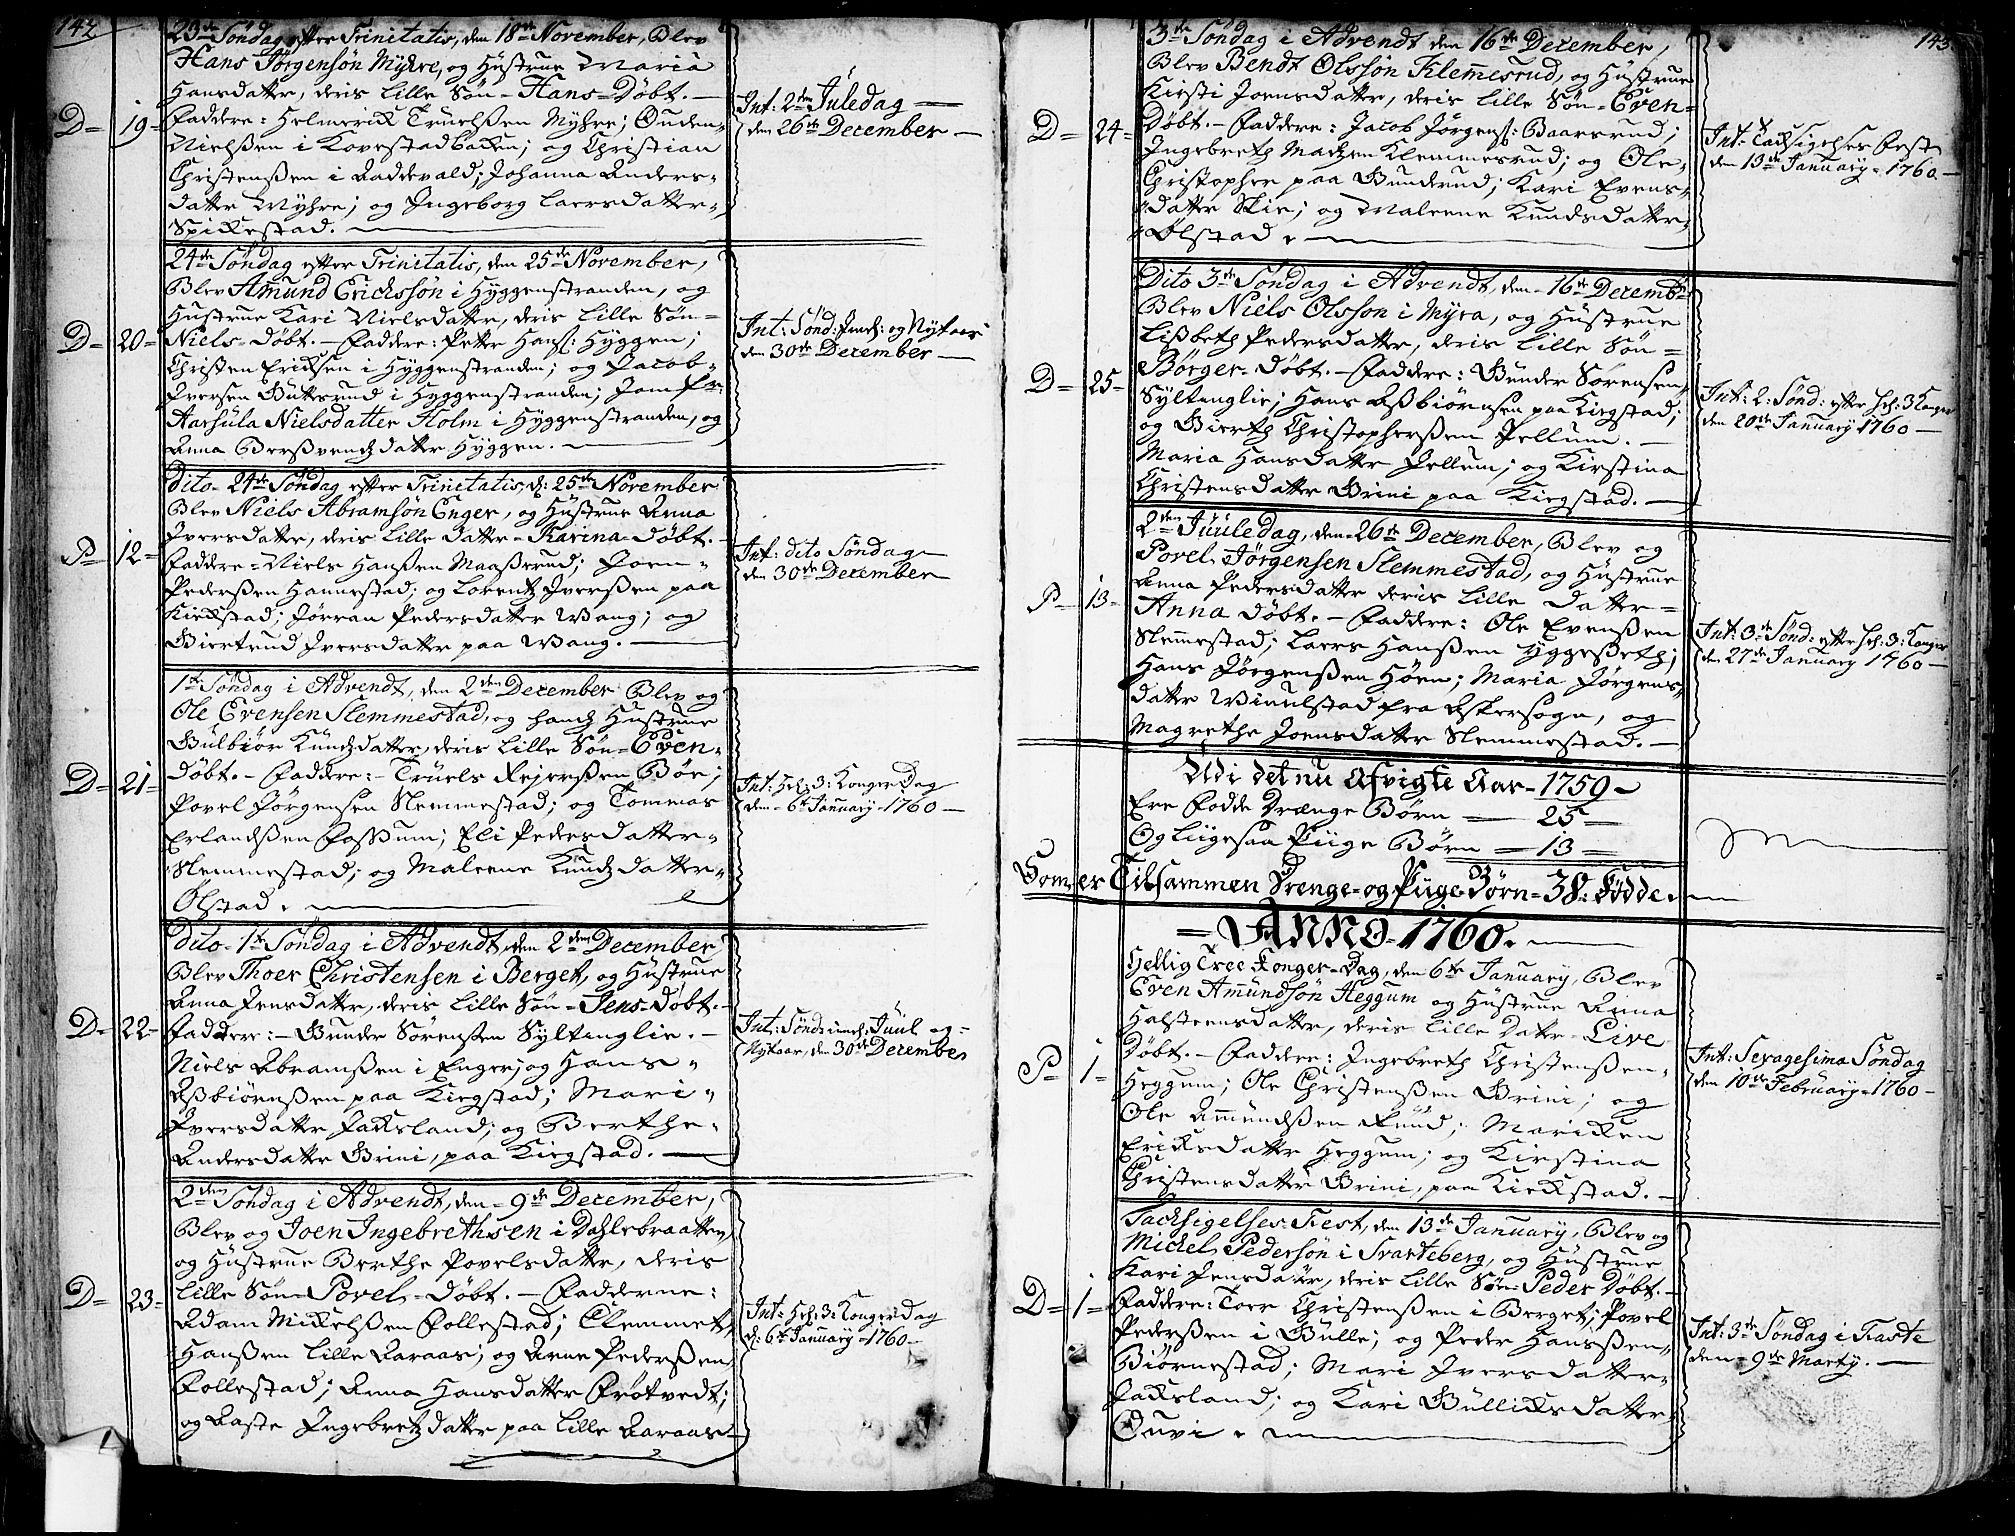 142
23de Søndag efter Trinitatis, den 18de November, Blev
Hans Jørgensøn Myhre, og Hustrue Maria
Hansdatter, deris Lille Søn = Hans = Døbt. —
D = 19 = Faddere: Helmerick Truelsen Myhre; Ouden
Nielsen i Kovestadbacken; og Christian
Christensen i Raddevald; Johanna Anders-
datter Myhre; og Ingeborg Laersdatter
Spickestad.
Int: 2den Juledag —
den 26de December —
24de Søndag efter Trinitatis, den 25de November,
Blev Amund Erichssøn i Hyggenstranden, og
Hustrue Kari Nielsdatter, deris Lille Søn =
D = 20 = Niels = Døbt. — Faddere: Petter Hans: Hyggen;
Christen Ericksen i Hyggenstranden; og Jacob
Iversen Buttsrud i Hyggenstranden; Jomfr:
Aarsüla Nielsdatter Holm i Hyggenstranden, og
Anna Bersvendsdatter Hyggen. —
Int: Sønd: imel: og Nytaar
den 30de December —
Dito = 24de Søndag efter Trinitatis, d: 25de November
Blev Niels Abramsøn Enger, og Hustrue Anna
Iversdatter, deris Lille datter = Karina = Døbt. —
P = 12 = Faddere = Niels Hansen Maaserud; Joen
Pedersen Hannestad; og Lorentz Iversen paa
Kirkstad; Jørran Pedersdatter Wang; og
Biertrud Iversdatter paa Wang. —
Int: dito Søndag
den 30de December
1te Søndag i Advendt, den 2den December Blev og
Ole Evensen Slemmestad, og hands Hustrue
Bülbiør Kundsdatter, deris Lille Søn = Even =
D = 21 = Døbt. — Faddere: — Truels Rejersen Bøe;
Povel Jørgensen Slemmestad; og Tommas
Erlandsen Fossum; Eli Pedersdatter
Slemmestad; og Maleene Kundsdatter
Ølstad.
Int: Hel: 3: Konger Dag
den = 6te January = 1760 —
Dito = 1te Søndag i Advendt, den 2den December,
Blev Thoer Christensen i Berget, og Hustrue
Anna Jensdatter, deris Lille Søn = Jens = Døbt. —
D = 22 = Faddere: — Gunder Sørensen Syltinglie. —
Niels Abramsen i Enger; og Hans
Asbiørnsen paa Kirgstad; Mari
Iversdatter Jacksland; og Berthe
Andersdatter Brini, paa Kirgstad. —
Int: Sønd: imel: Juul og
Nytaar, den 30de December
2den Søndag i Advendt, den = 9de December,
Blev og Joen Ingebrethsen i Dahlebraatten
og Hustrue Berthe Povelsdatter, deris
D = 23 = Lille Søn = Povel = Døbt. — Fadderne:
Adam Mickelsen Follestad; Clemmet
Hansen Lille Aaraas; og Arne Pedersen
Follestad; Anna Hansdatter Frøtvedt;
og Aaste Ingebretsdatter paa Lille Aaraas
Int: Hel: 3: Konger Dag
d: 6te January = 1760 —
143
3de Søndag i Advendt den 16de December,
Blev Bendt Olssøn Klemmesrud, og Hustrue
Kirsti Joensdatter, deris Lille Søn = Even =
D = 24 = Døbt. — Faddere: Jacob Jørgens: Baarsrud;
Ingebreth Madsen Klemmesrud; og Ole
Christopher paa Gunderud; Kari Evens
datter Skie; og Maleene Kundsdatter
Ølstad.
Int: Tacksigelses Fest
den 13de January = 1760 —
Dito 3de Søndag i Advendt, den = 16de Decembr
Blev Niels Olsson i Myra, og Hustrue
Lisbeth Pedersdatter, deris Lille Søn =
D = 25 = Børger = Døbt. — Faddere: Gunder Sørensen
Syltinglie; Hans Asbiørnsen paa Kirgstad;
og Bierth Christophersen Pellum. —
Maria Hansdatter Pellum; og Kirstina
Christensdatter Brini paa Kirgstad. —
Int: 2: Sønd: efter Hel: 3 Konger
den 20de January 1760 —
2den Juuledag, den = 26de December, Blev og
Povel Jørgensen Slemmestad, og Hustrue
Anna Pedersdatter deris Lille datter =
P = 13 = Anna Døbt. — Faddere: Ole Evensen
Slemmestad; Laers Hansen Hyggeseth;
Hans Jørgensen Høen; Maria Jørgens
datter Winulstad fra Askersogn, og
Magrethe Joensdatter Slemmestad. —
Int: 3de Sønd: efter Hel: 3: Konger
den 27de January 1760 —
Udi det nu Afvigte Aar = 1759 =
Ere Fødde Drænge Børn — 25 —
Og Liigesaa Piige Børn — 13 —
Som er Tilsammen Drenge = og Piige Børn = 38: Fødde
= ANNO = 1760. —
Hellig Tree Konger = Dag, den 6te January, Blev
Even Amündsøn Heggum og Hustrue Anna
Halsteensdatter, deris Lille Datter = Live
P = 1 = Døbt. — Faddere: Ingebreth Christensen
Heggum; Ole Christensen Brini; og
Ole Amundsen Ruud; Maricken
Ericksdatter Heggum; og Kirstina
Christensdatter Brini, paa Kirckstad. —
Int: Sexagesima Søndag
den 10de February = 1760 —
Tacksigelses = Fest, den 13de January, Blev og
Mickel Pedersøn i Svarteberg, og Hustrue
Kari Jensdatter, deris Lille Søn = Peder Døbt. —
D = 1 = Faddere: Toer Christensen i Berget; Povel
Pedersen i Bülle; og Peder Hanssen
Biørnestad; Mari Iversdatter
Jacksland; og Kari Gullicksdatter
Ouvi.
Int: 3de Søndag i Faste
den = 9de Marty. —